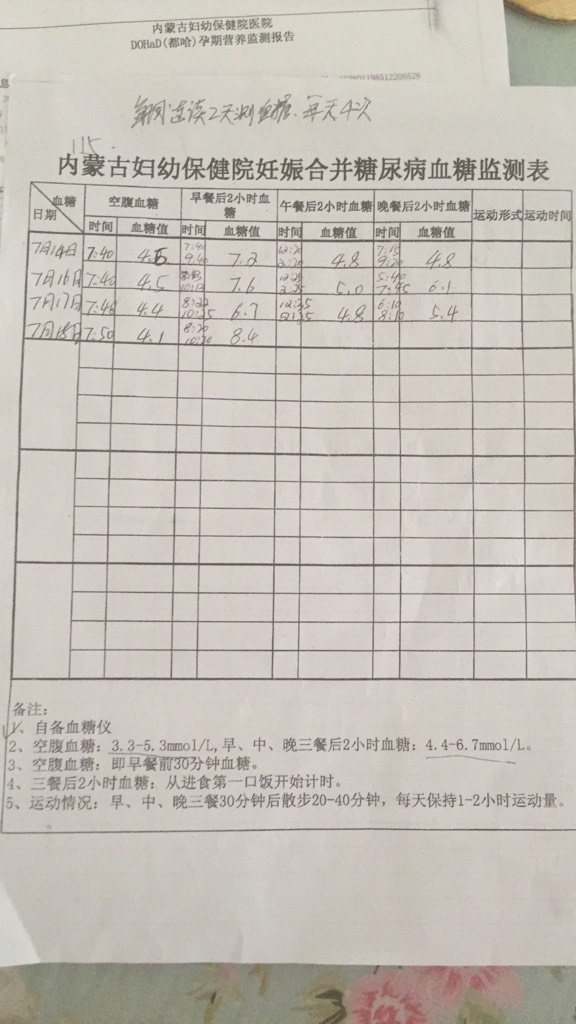 内蒙古妇幼保健院医院
DOHaD(都哈)孕期营养监测报告
息
每周连续2天测血糖、每天4次
115.
内蒙古妇幼保健院妊娠合并糖尿病血糖监测表
血糖 日期 空腹血糖 早餐后2小时血糖 午餐后2小时血糖 晚餐后2小时血糖 运动形式 运动时间
时间 血糖值 时间 血糖值 时间 血糖值 时间 血糖值
7月14日 7:40 9:40 7.2 4.8 7:15 9:20 4.8
7月16日 7:40 4.5 7.6 5.0 5:40 7:45 6.1
7月17日 7:48 4.4 8:22 10:25 6.7 12:35 4.8 6:10 8:10 5.4
7月18日 7:50 4.1 8:20 10:20 8.4
备注:
1、自备血糖仪
2、空腹血糖: 3.3-5.3mmol/L,早、中、晚三餐后2小时血糖: 4.4-6.7mmol/L。
3、空腹血糖: 即早餐前30分钟血糖。
4、三餐后2小时血糖: 从进食第一口饭开始计时。
5、运动情况: 早、中、晚三餐30分钟后散步20-40分钟, 每天保持1-2小时运动量。